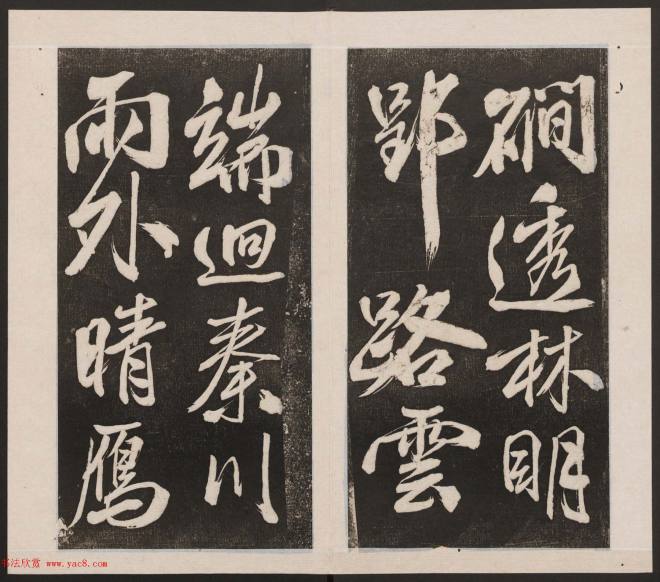 磵透林明
郢路雲
端逈秦川
雨外晴鴈
书法欣赏 www.yac8.com